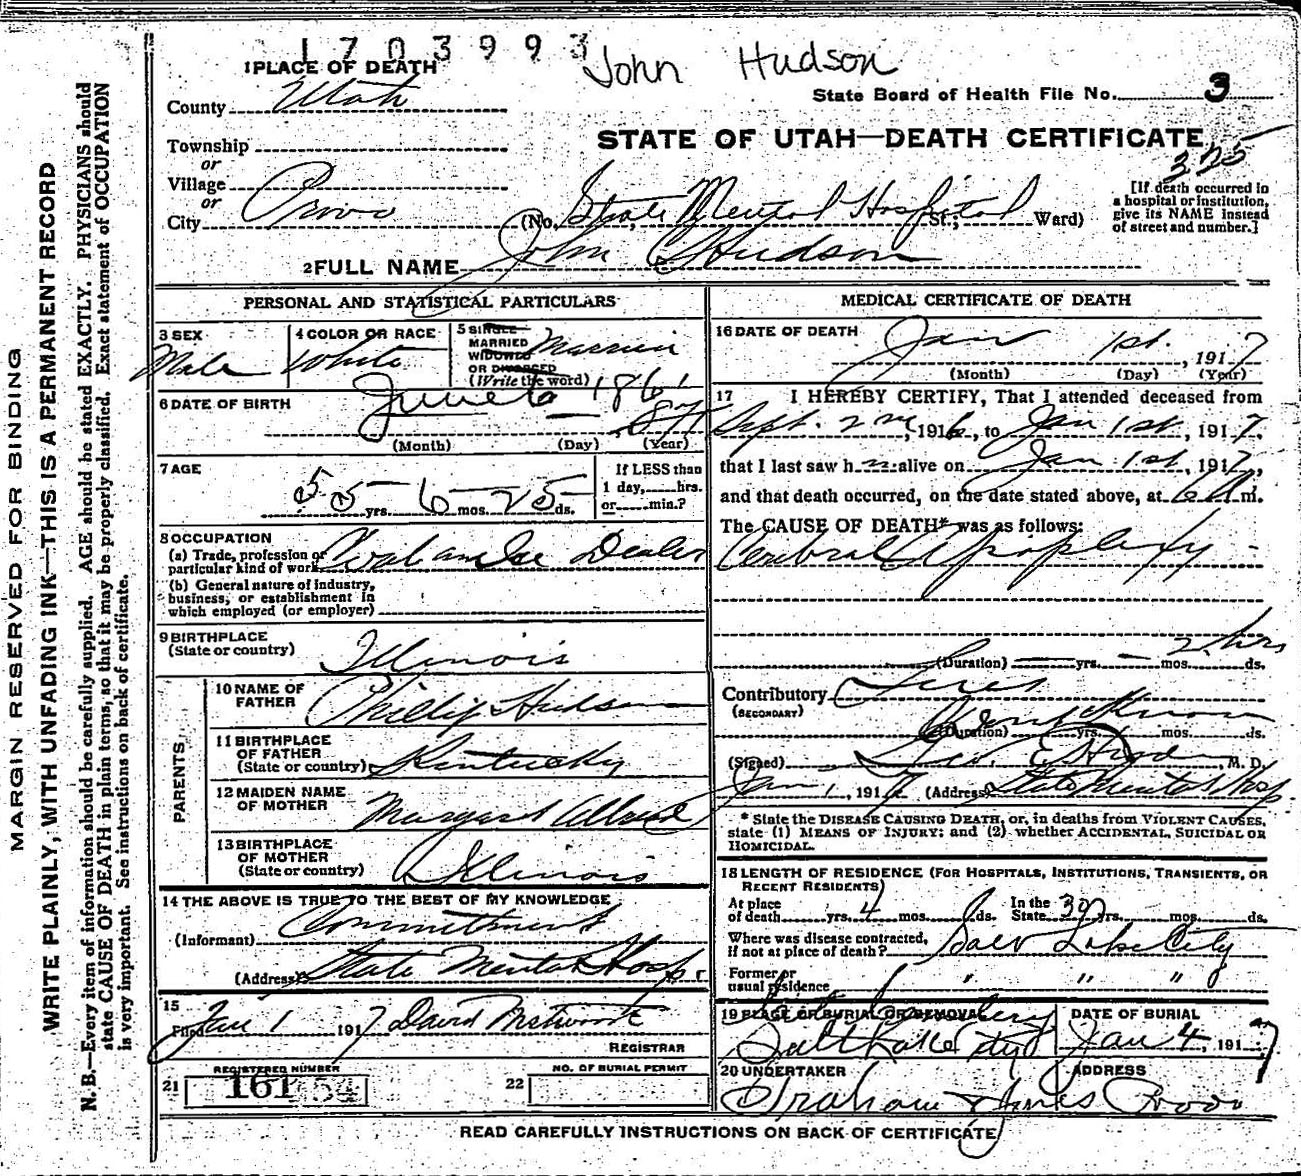 1703993
John Hudson
1 PLACE OF DEATH
County Utah
State Board of Health File No. 3
STATE OF UTAH—DEATH CERTIFICATE
325
Township
or
Village
or
City Provo
(No. State Mental Hospital St.; Ward)
[If death occurred in
a hospital or institution,
give its NAME instead
of street and number.]
2 FULL NAME John Hudson
PERSONAL AND STATISTICAL PARTICULARS
3 SEX
Male
4 COLOR OR RACE
White
5 SINGLE
MARRIED
WIDOWED
OR DIVORCED
(Write the word)
Married
6 DATE OF BIRTH
June 6 1861
(Month) (Day) (Year)
7 AGE
55 yrs. 6 mos. 25 ds.
If LESS than
1 day, hrs.
or min.?
8 OCCUPATION
(a) Trade, profession or
particular kind of work Dealer
(b) General nature of industry,
business, or establishment in
which employed (or employer)
9 BIRTHPLACE
(State or country)
Illinois
PARENTS
10 NAME OF
FATHER
Phillip Hudson
11 BIRTHPLACE
OF FATHER
(State or country) Kentucky
12 MAIDEN NAME
OF MOTHER
Margaret
13 BIRTHPLACE
OF MOTHER
(State or country)
Illinois
14 THE ABOVE IS TRUE TO THE BEST OF MY KNOWLEDGE
(Informant) Commitment
(Address) State Mental Hosp.
15
Filed Jan 1 1917 David Westwood
REGISTRAR
21 REGISTERED NUMBER
161
22 NO. OF BURIAL PERMIT
MEDICAL CERTIFICATE OF DEATH
16 DATE OF DEATH
Jan 1st. , 1917
(Month) (Day) (Year)
17 I HEREBY CERTIFY, That I attended deceased from
Sept. 2nd, 1916, to Jan 1st, 1917,
that I last saw h m alive on Jan 1st, 1917,
and that death occurred, on the date stated above, at 6 A m.
The CAUSE OF DEATH* was as follows:
Cerebral Apoplexy
2 hrs
(Duration) yrs. mos. ds.
Contributory
(SECONDARY)
(Duration) yrs. mos. ds.
(Signed) Geo. E. , M. D.
Jan 1, 1917 (Address) State Mental Hosp.
* State the DISEASE CAUSING DEATH, or, in deaths from VIOLENT CAUSES,
state (1) MEANS OF INJURY; and (2) whether ACCIDENTAL, SUICIDAL OR
HOMICIDAL.
18 LENGTH OF RESIDENCE (FOR HOSPITALS, INSTITUTIONS, TRANSIENTS, OR
RECENT RESIDENTS)
At place
of death yrs. 4 mos. ds.
In the
State 30 yrs. mos. ds.
Where was disease contracted,
if not at place of death? Salt Lake City
Former or
usual residence " " "
19 PLACE OF BURIAL OR REMOVAL
Salt Lake City
DATE OF BURIAL
Jan 4, 1917
20 UNDERTAKER
Graham &
ADDRESS
Provo
READ CAREFULLY INSTRUCTIONS ON BACK OF CERTIFICATE
MARGIN RESERVED FOR BINDING
WRITE PLAINLY, WITH UNFADING INK—THIS IS A PERMANENT RECORD
N. B.—Every item of information should be carefully supplied. AGE should be stated EXACTLY. PHYSICIANS should
state CAUSE OF DEATH in plain terms, so that it may be properly classified. Exact statement of OCCUPATION
is very important. See instructions on back of certificate.